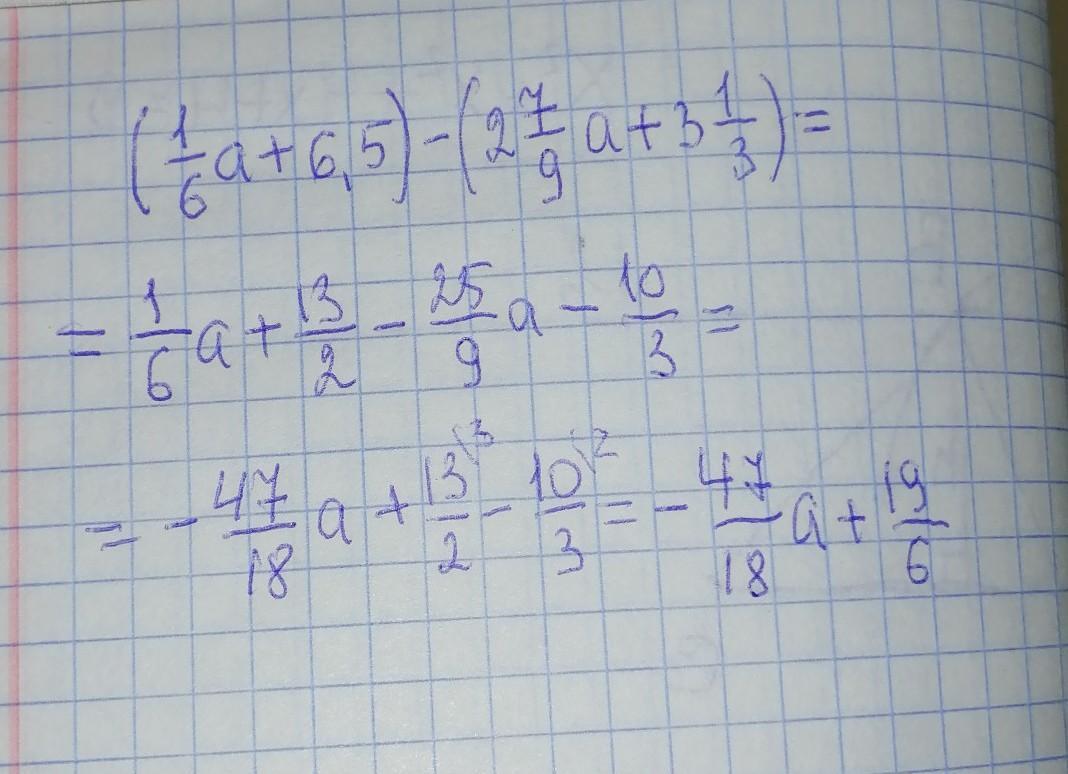 (1/6 a + 6,5) - (2 7/9 a + 3 1/3) =
= 1/6 a + 13/2 - 25/9 a - 10/3 =
= - 47/18 a + 13/2 \3 - 10/3 \2 = - 47/18 a + 19/6